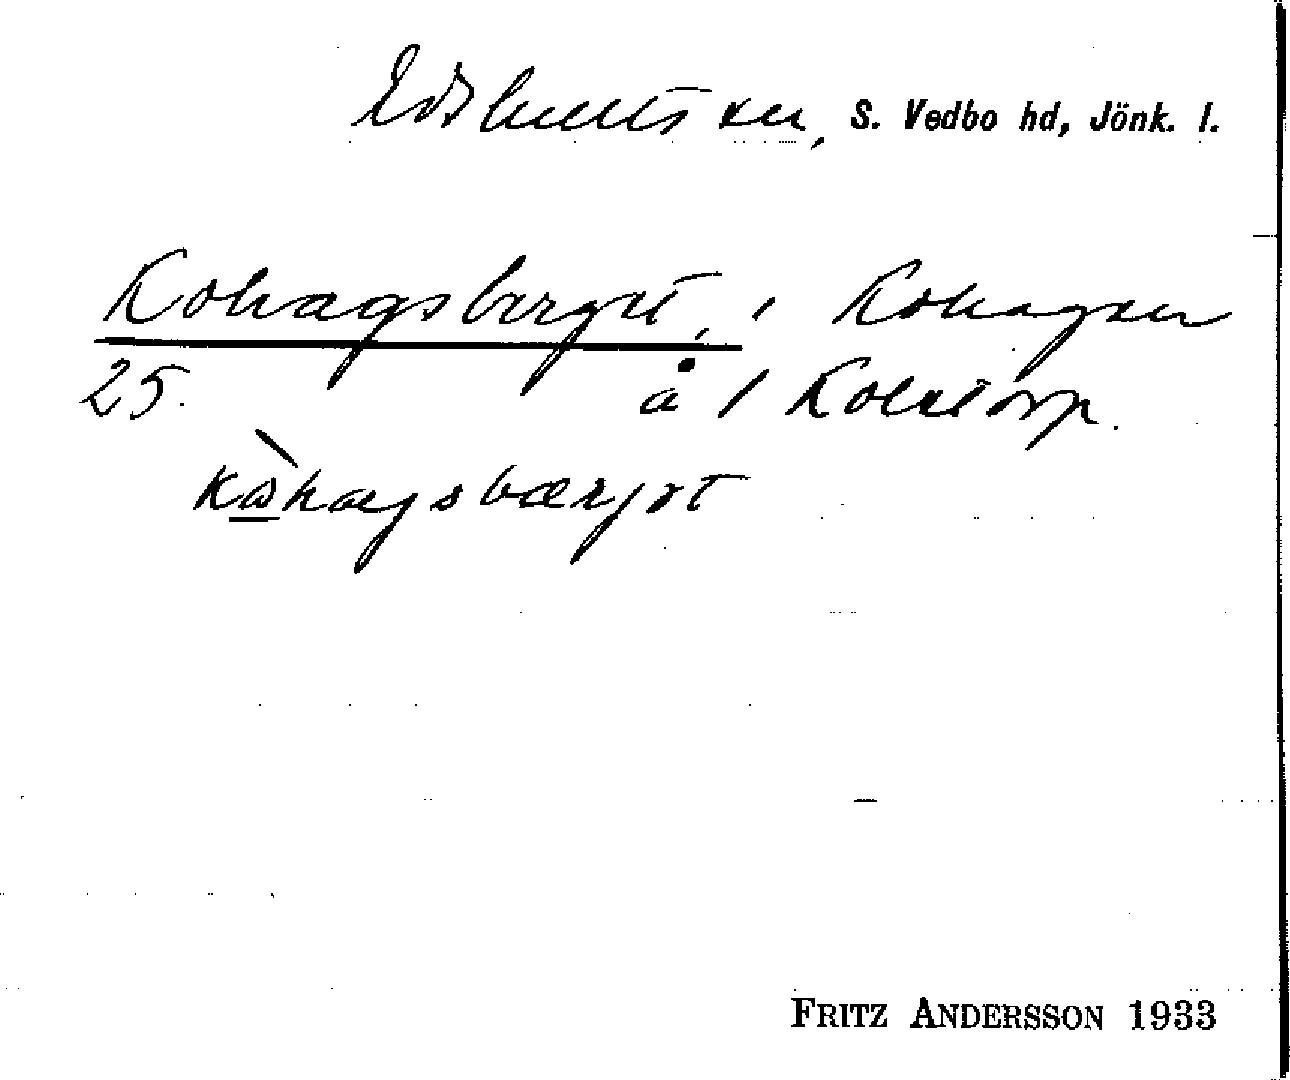 Edshults sn, S. Vedbo hd, Jönk. l.
Kohagsberget, i Kohagen
25. å / Kolstorp.
kωhagsbærjət
FRITZ ANDERSSON 1933